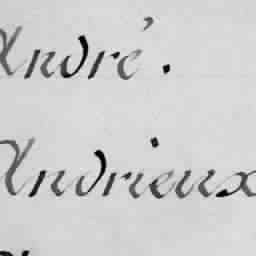 André.
Andrieux